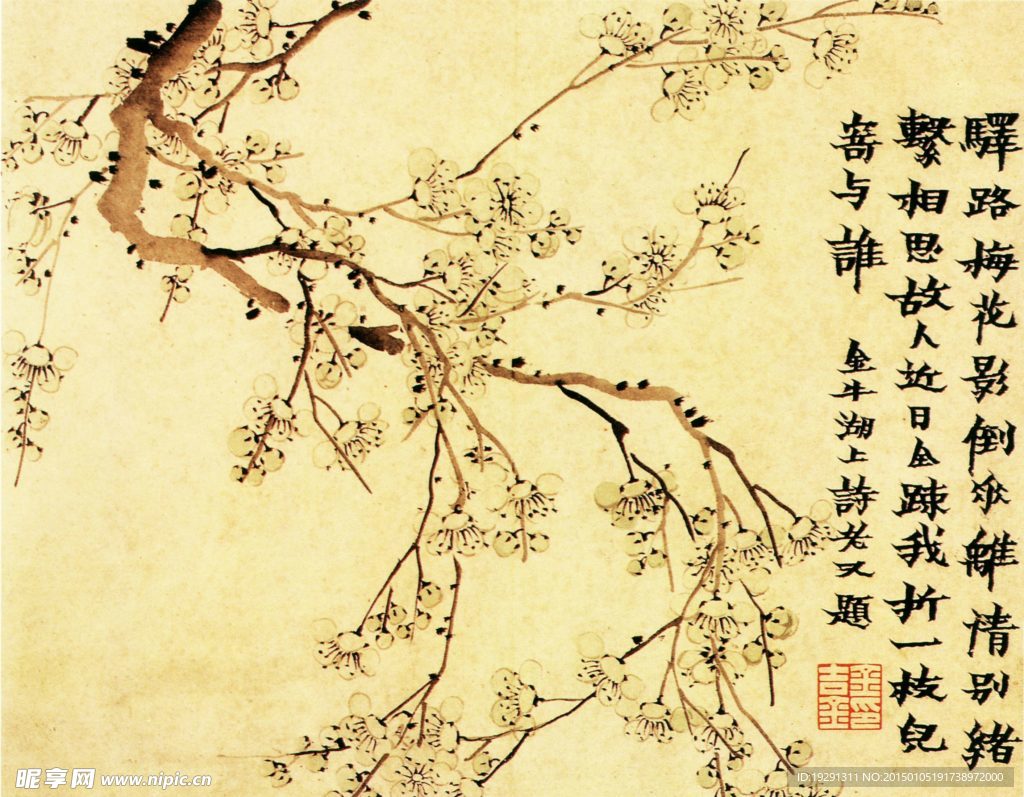 驛路梅花影倒垂離情別緒
繫相思故人近日全疎我折一枝兒
寄与誰 金牛湖上詩老又題
金印
吉金
昵享网 www.nipic.cn
ID:19291311 NO:20150105191738972000